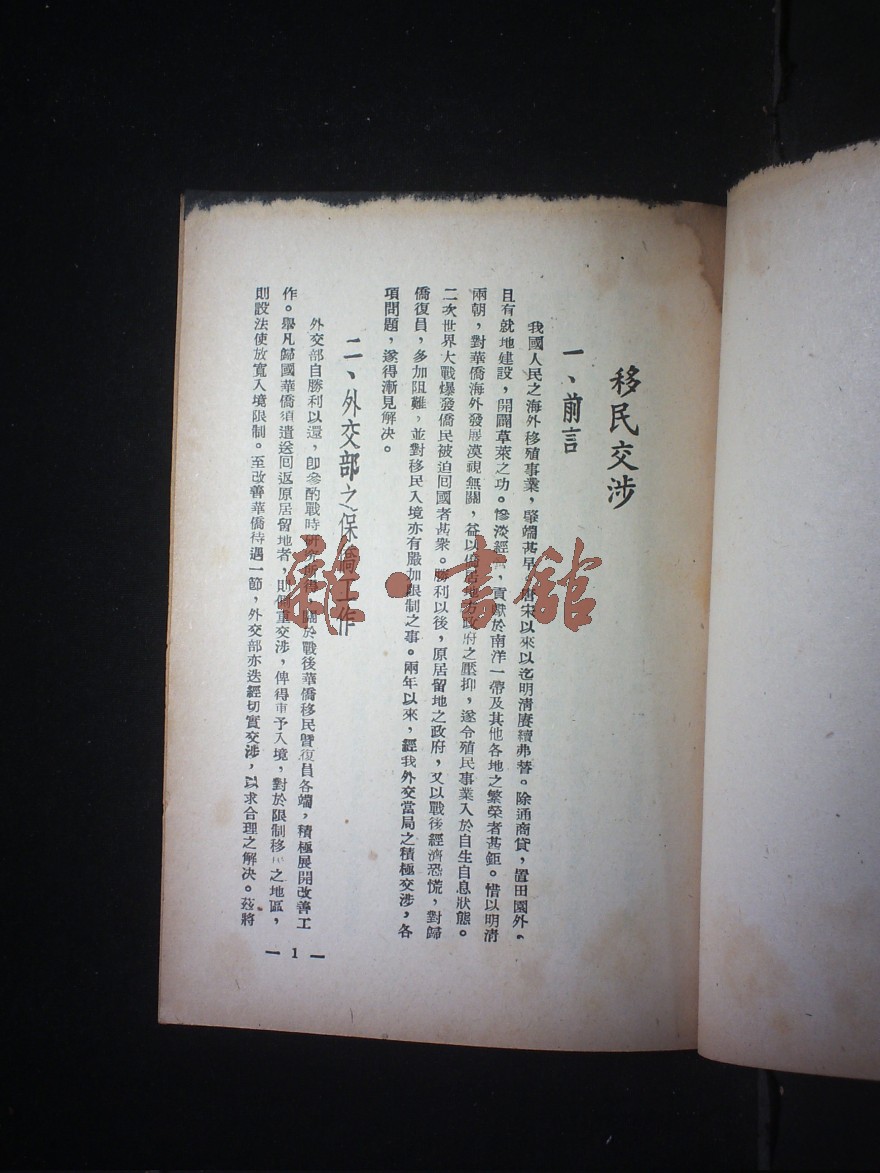 移民交涉
一、前言
我國人民之海外移殖事業，肇端甚早，唐宋以來以迄明清賡續弗替。除通商貸，置田園外，
且有就地建設，開闢草萊之功。慘淡經，貢獻於南洋一帶及其他各地之繁荣者甚鉅。惜以明清
兩朝，對華僑海外發展漠視無關，益以僑居地方政府之壓抑，遂令殖民事業入於自生自息狀態。
二次世界大戰爆發僑民被迫回國者甚衆。勝利以後，原居留地之政府，又以戰後經濟恐慌，對歸
僑復員，多加阻難，並對移民入境亦有嚴加限制之事。兩年以來，經我外交當局之積極交涉，各
項問題，遂得漸見解決。
二、外交部之保僑工作
外交部自勝利以還，卽參酌戰時研究所得，關於戰後華僑移民暨復員各端，積極展開改善工
作。舉凡歸國華僑須遣送回返原居留地者，則側重交涉，俾得重予入境，對於限制移之地區，
則設法使放寬入境限制。至改善華僑待遇一節，外交部亦迭經切實交涉，以求合理之解決。茲將
— 1 —
雜·書館